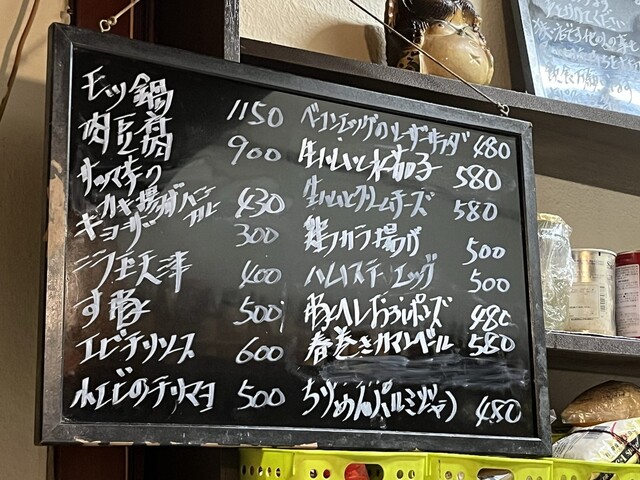 モツ鍋 1150
肉豆腐 900
サツマ芋の
カキ揚ゲハニーカレー 430
ギョーザ 300
ニラ玉天津 400
す豚 500
エビチリソース 600
小エビのチリマヨ 500
ベーコンエッグのシーザーサラダ 480
生ハムと水茄子 580
生ハムとクリームチーズ 580
鶏カラ揚げ 500
ハムステーキエッグ 500
豚ヘレ ポン酢 480
春巻きカマンベール 580
ちりめんパルミジャーノ 480